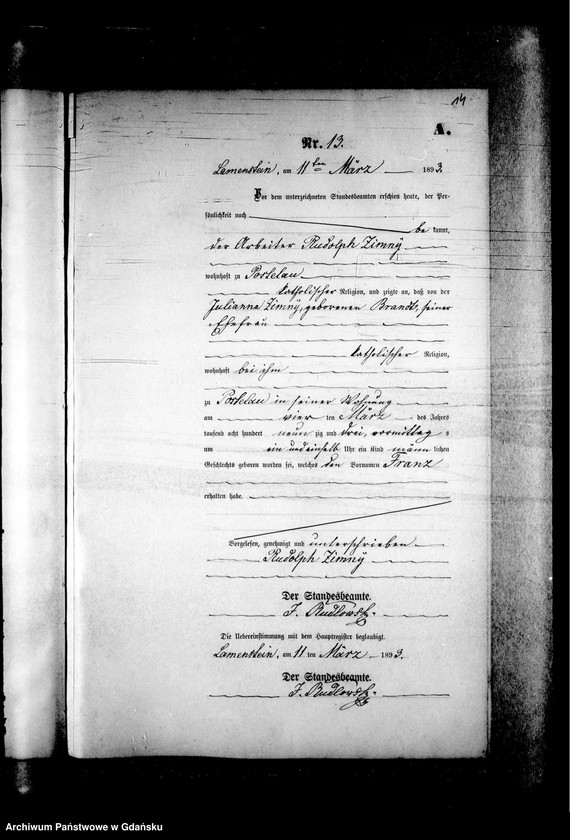 14
A.
Nr. 13.
Lamenstein, am 11ten März 1893.
Vor dem unterzeichneten Standesbeamten erschien heute, der Per-
sönlichkeit nach
be kannt,
der Arbeiter Rudolph Zimny
wohnhaft zu Postelau
katholischer Religion, und zeigte an, daß von der
Julianna Zimny, geborenen Brandt, seiner
Ehefrau
katholischer Religion,
wohnhaft bei ihm
zu Postelau in seiner Wohnung
am vier ten März des Jahres
tausend acht hundert neun zig und drei, vormittag s
um ein und einhalb Uhr ein Kind männ lichen
Geschlechts geboren worden sei, welches den Vornamen Franz
erhalten habe.
Vorgelesen, genehmigt und unterschrieben
Rudolph Zimny
Der Standesbeamte.
J. Rudlowski.
Die Uebereinstimmung mit dem Hauptregister beglaubigt.
Lamenstein, am 11 ten März 1893.
Der Standesbeamte.
J. Rudlowski.
Archiwum Państwowe w Gdańsku